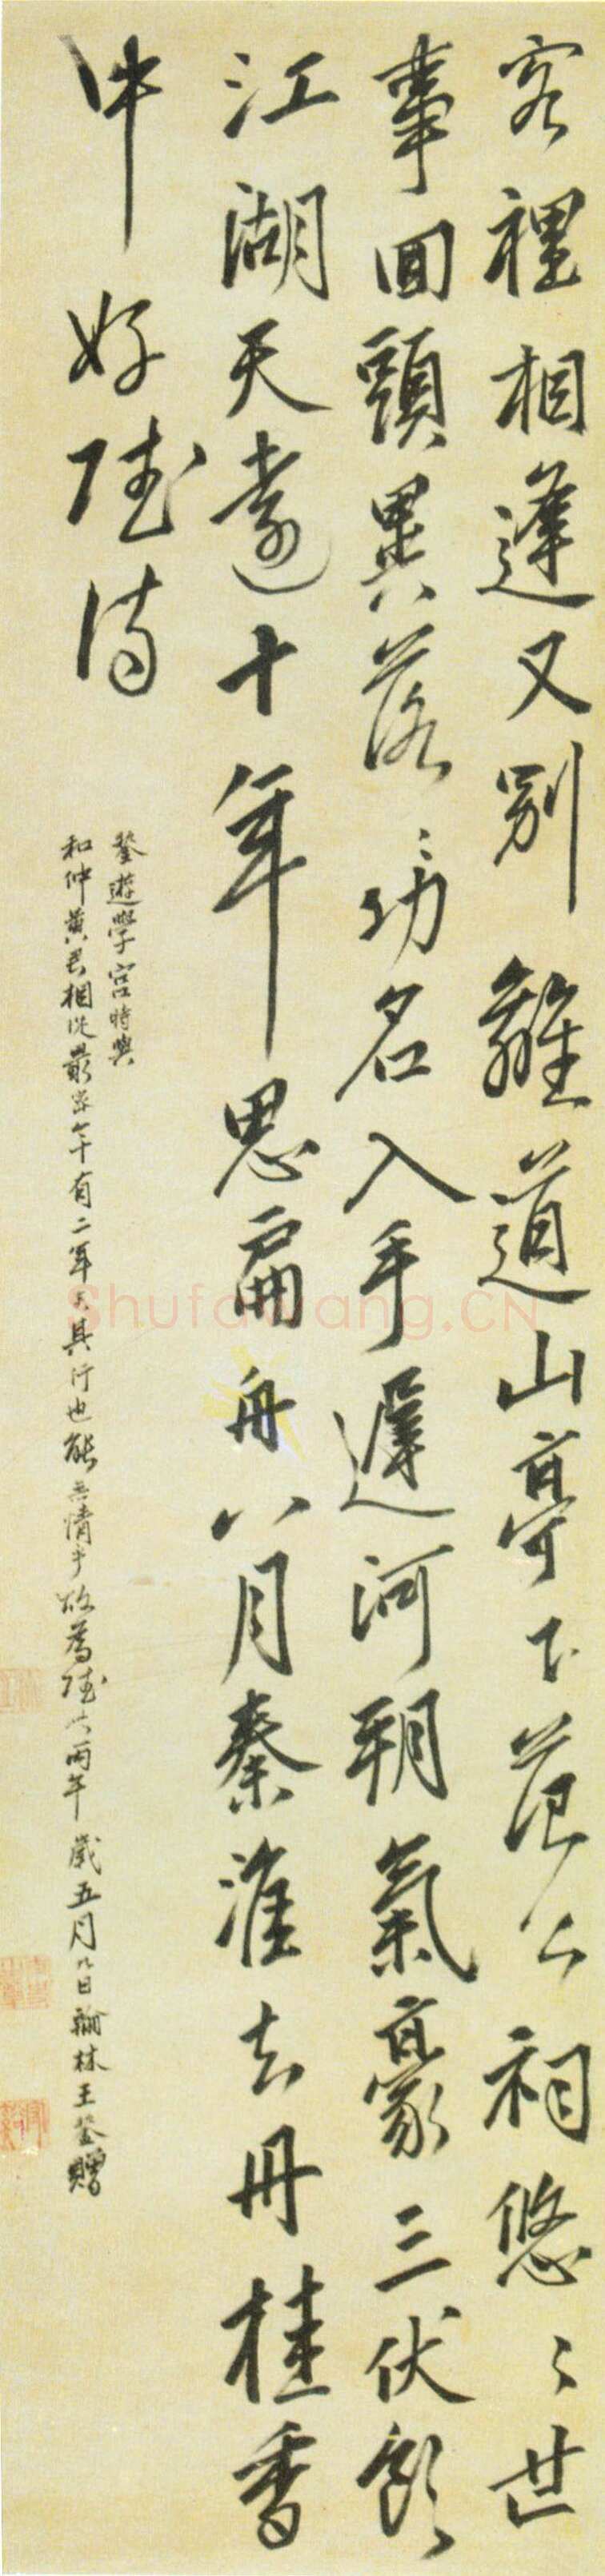 客裡相逢又別離道山亭下范公祠悠〻世
事回頭異落〻功名入手遲河朔氣豪三伏飲
江湖天遠十年思扁舟八月秦淮去丹桂香
中好聽詩
鏊遊學宮時與
和仲黃君相從最 午有二年 其行也能無情乎故為 丙午歲五月 日翰林王鏊贈
Shufawang.CN